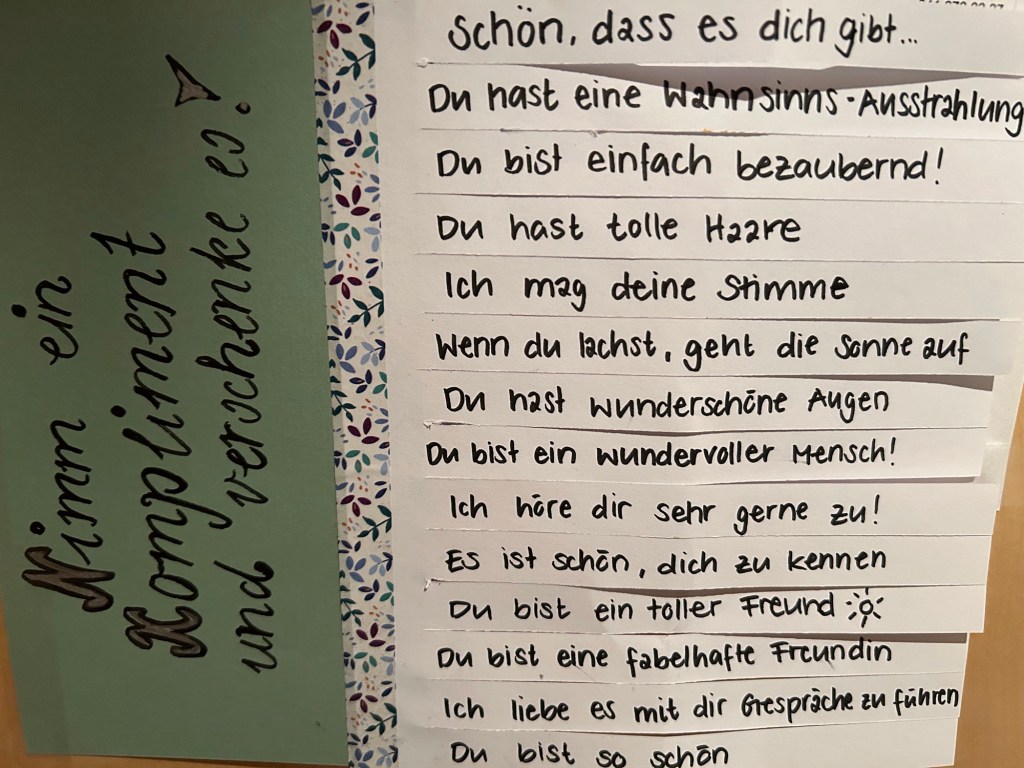 Nimm ein
Kompliment
und verschenke es!
Schön, dass es dich gibt...
Du hast eine Wahnsinns-Ausstrahlung
Du bist einfach bezaubernd!
Du hast tolle Haare
Ich mag deine Stimme
Wenn du lachst, geht die Sonne auf
Du hast wunderschöne Augen
Du bist ein wundervoller Mensch!
Ich höre dir sehr gerne zu!
Es ist schön, dich zu kennen
Du bist ein toller Freund
Du bist eine fabelhafte Freundin
Ich liebe es mit dir Gespräche zu führen
Du bist so schön